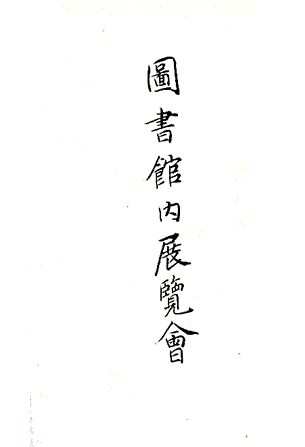 圖書館内展覽會